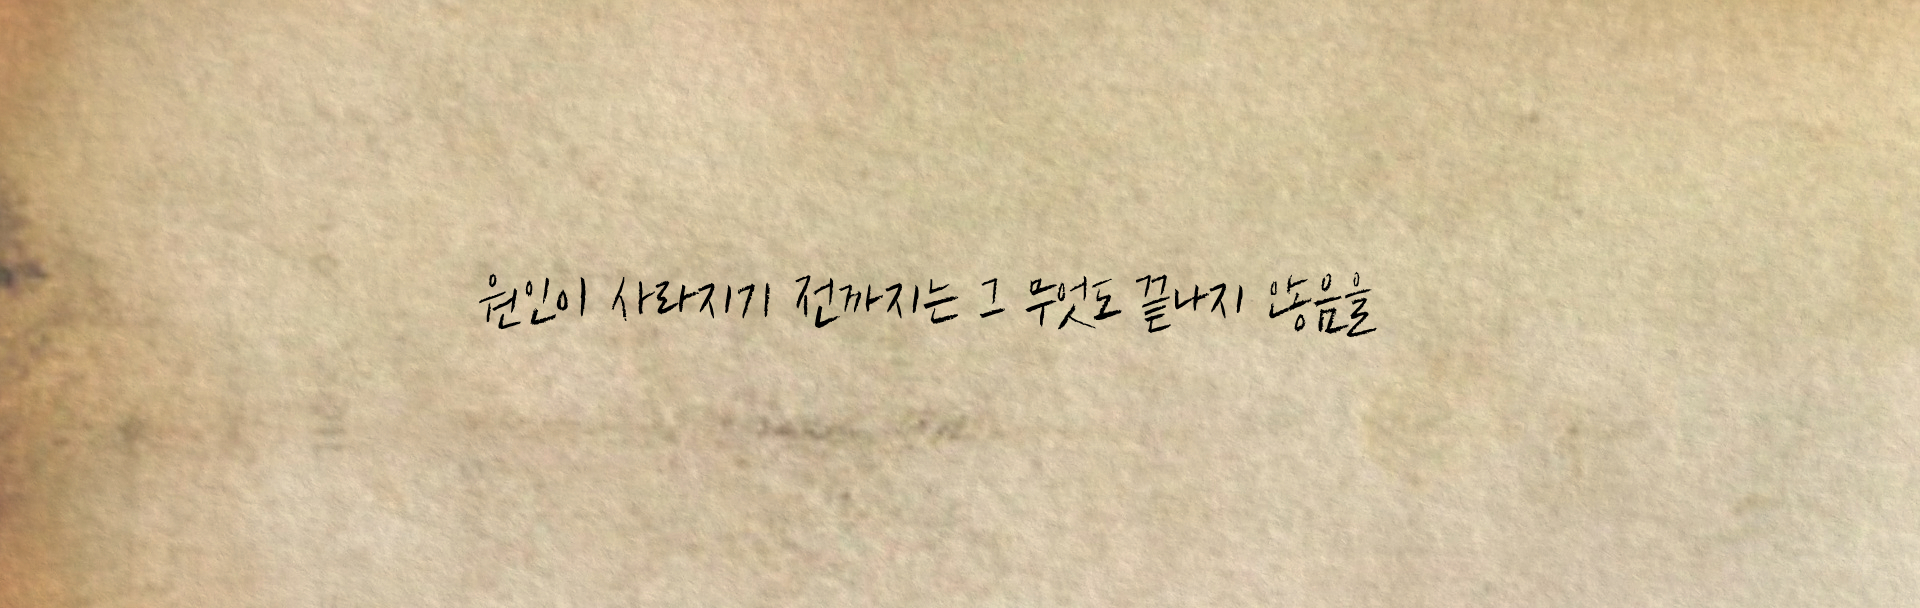 원인이 사라지기 전까지는 그 무엇도 끝나지 않음을